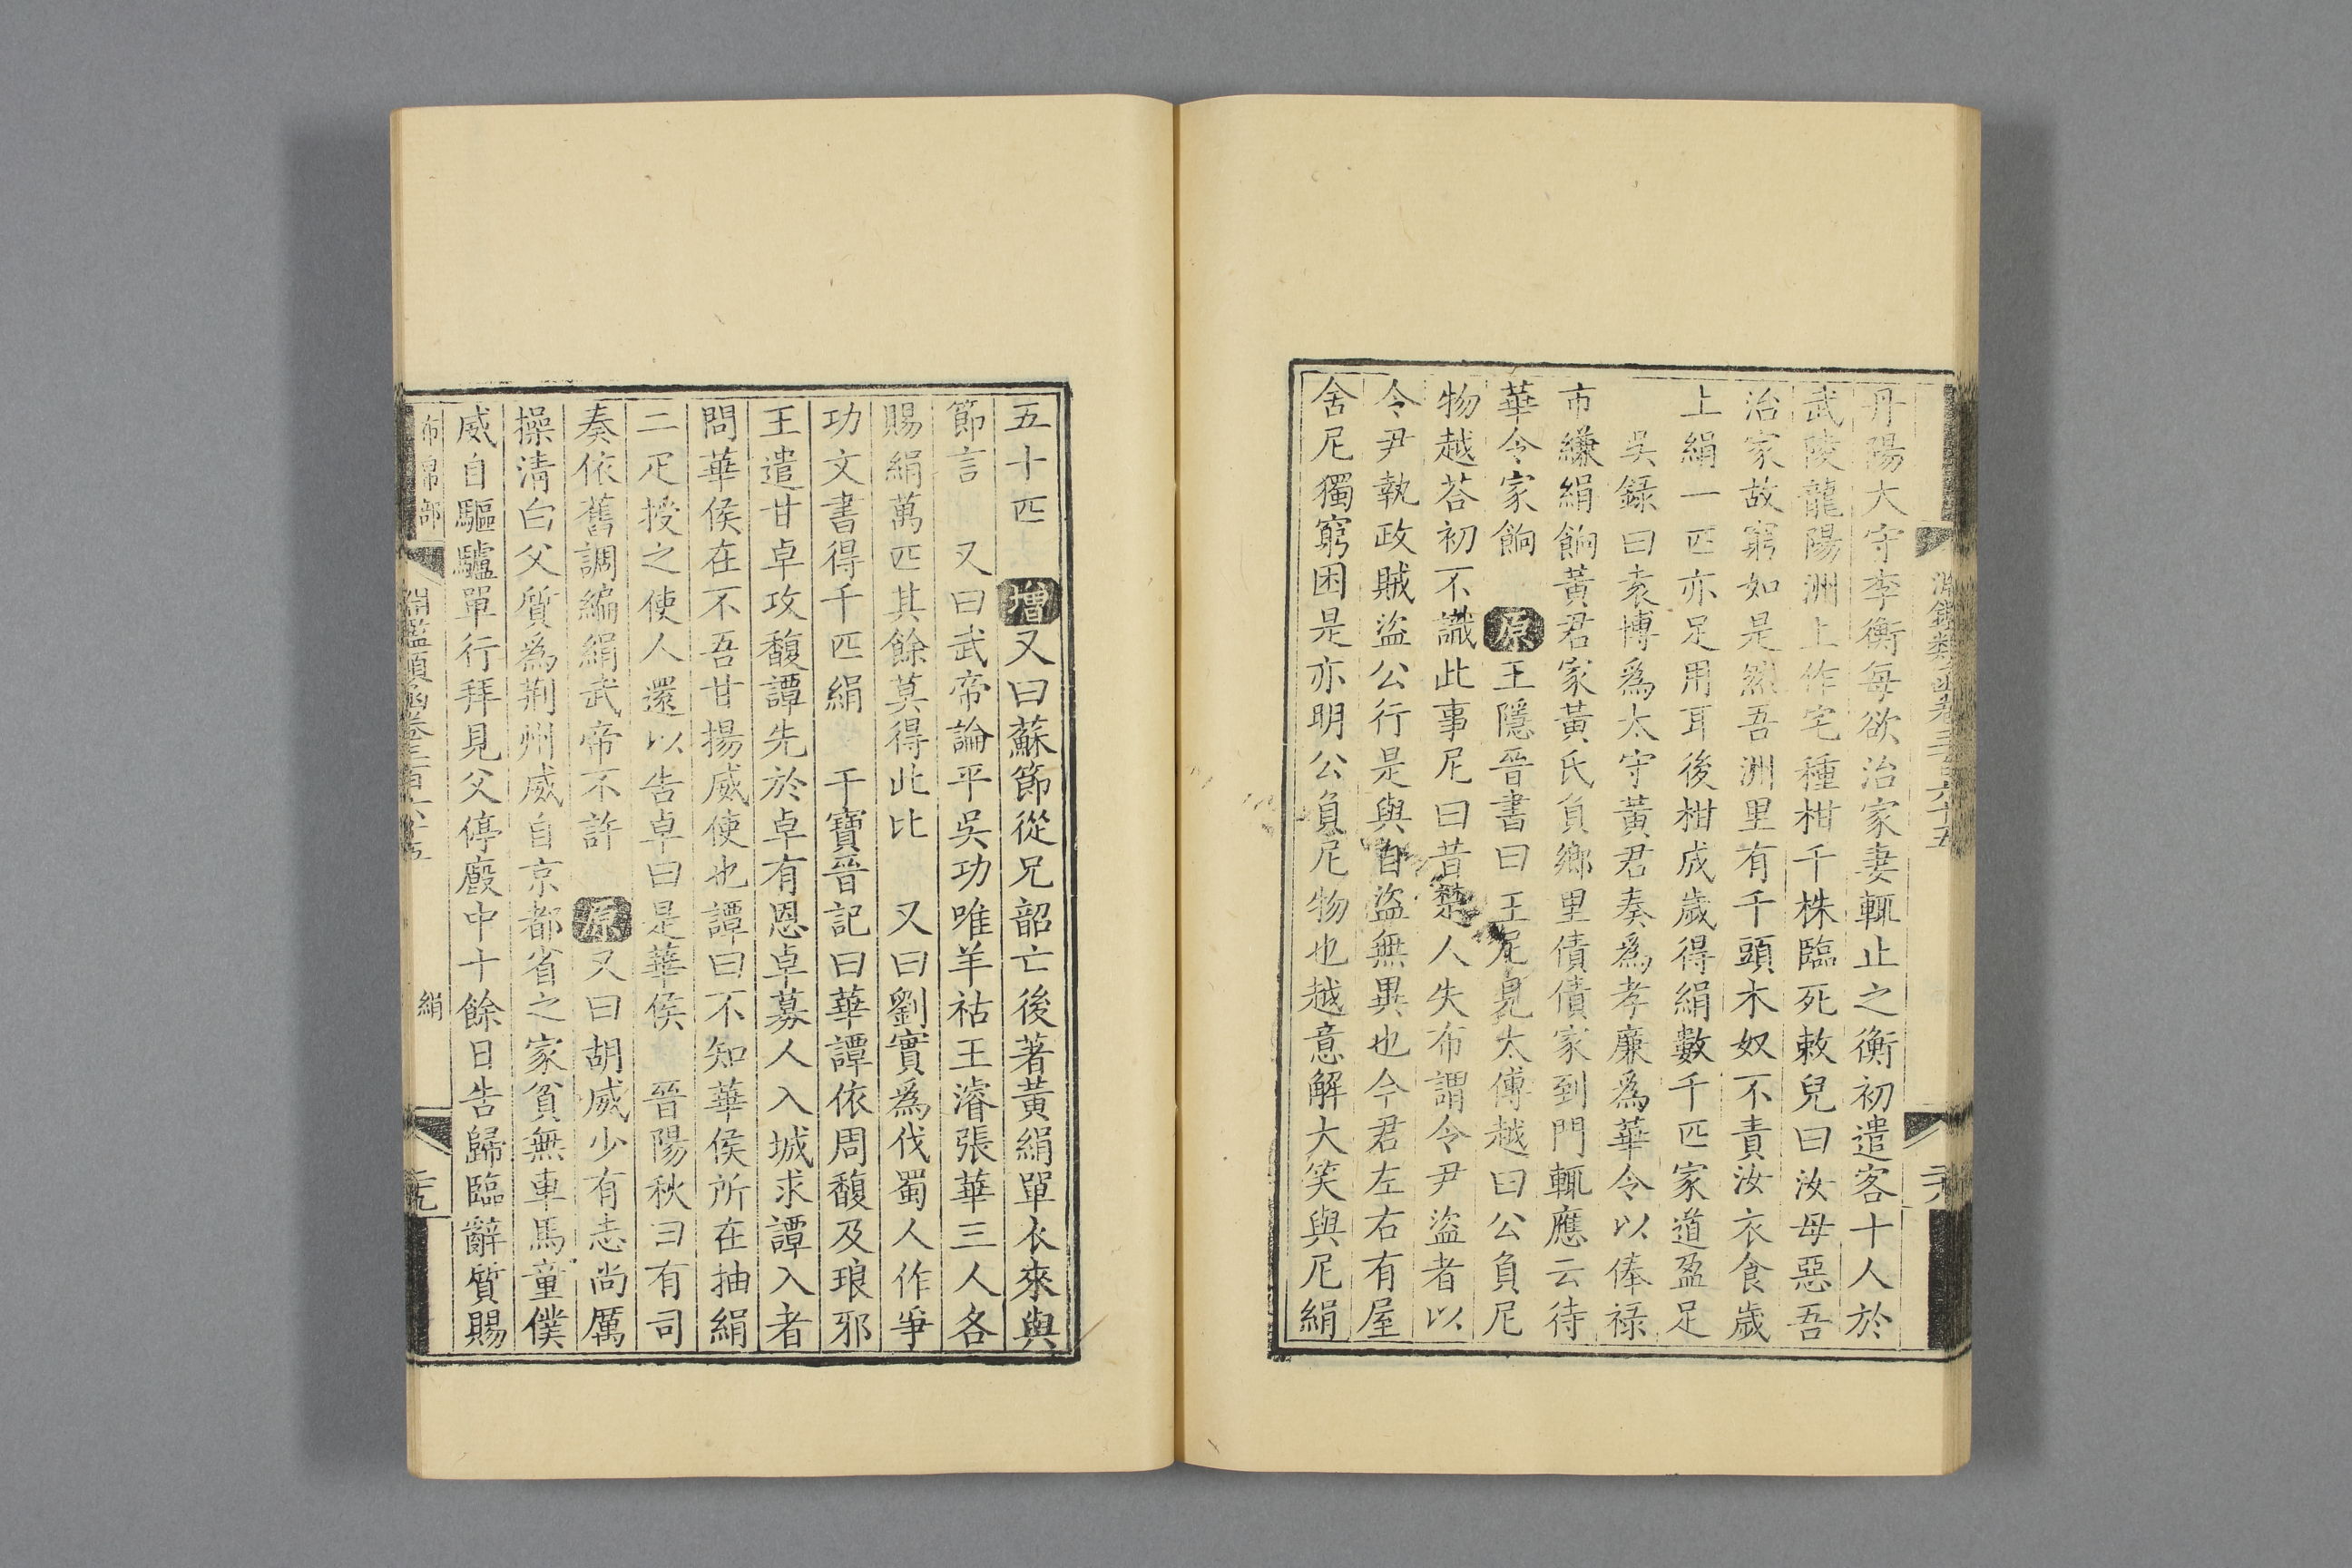 淵鑑類函卷三百六十五
丹陽大守李衡每欲治家妻輒止之衡初遣客十人於
武陵龍陽洲上作宅種柑千株臨死敕兒曰汝母惡吾
治家故窮如是然吾洲里有千頭木奴不責汝衣食歲
上絹一匹亦足用耳後柑成歲得絹數千匹家道盈足
吳錄曰袁博爲太守黃君奏爲孝廉爲華令以俸禄
市縑絹餉黃君家黃氏負鄉里債債家到門輒應云待
華令家餉 原王隱晉書曰王尼見太傅越曰公負尼
物越荅初不識此事尼曰昔楚人失布謂令尹盜者以
令尹執政賊盜公行是與自盜無異也今君左右有屋
舍尼獨窮困是亦明公負尼物也越意解大笑與尼絹
五十匹 增又曰蘇節從兄韶亡後著黃絹單衣來與
節言 又曰武帝論平吳功唯羊祜王濬張華三人各
賜絹萬匹其餘莫得此比 又曰劉實爲伐蜀人作爭
功文書得千匹絹 干寶晉記曰華譚依周馥及琅邪
王遣甘卓攻馥譚先於卓有恩卓募人入城求譚入者
問華侯在不吾甘揚威使也譚曰不知華侯所在抽絹
二疋授之使人還以告卓曰是華侯 晉陽秋曰有司
奏依舊調編絹武帝不許 原又曰胡威少有志尚厲
操清白父質爲荆州威自京都省之家貧無車馬童僕
威自驅驢單行拜見父停廄中十餘日告歸臨辭質賜
布帛部 淵鑑類函卷三百六十五 絹